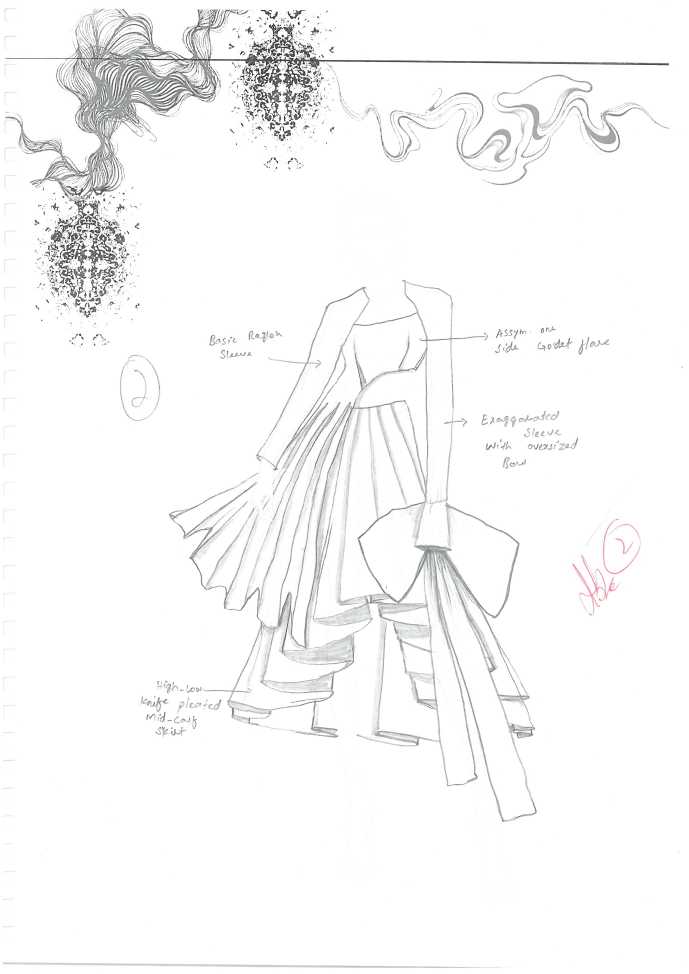 Basic Raglan
Sleeve
Assym. one
side Godet flare
2
Exaggarated
Sleeve
With oversized
Bow
2
High-Low
Knife pleated
Mid-calf
Skirt